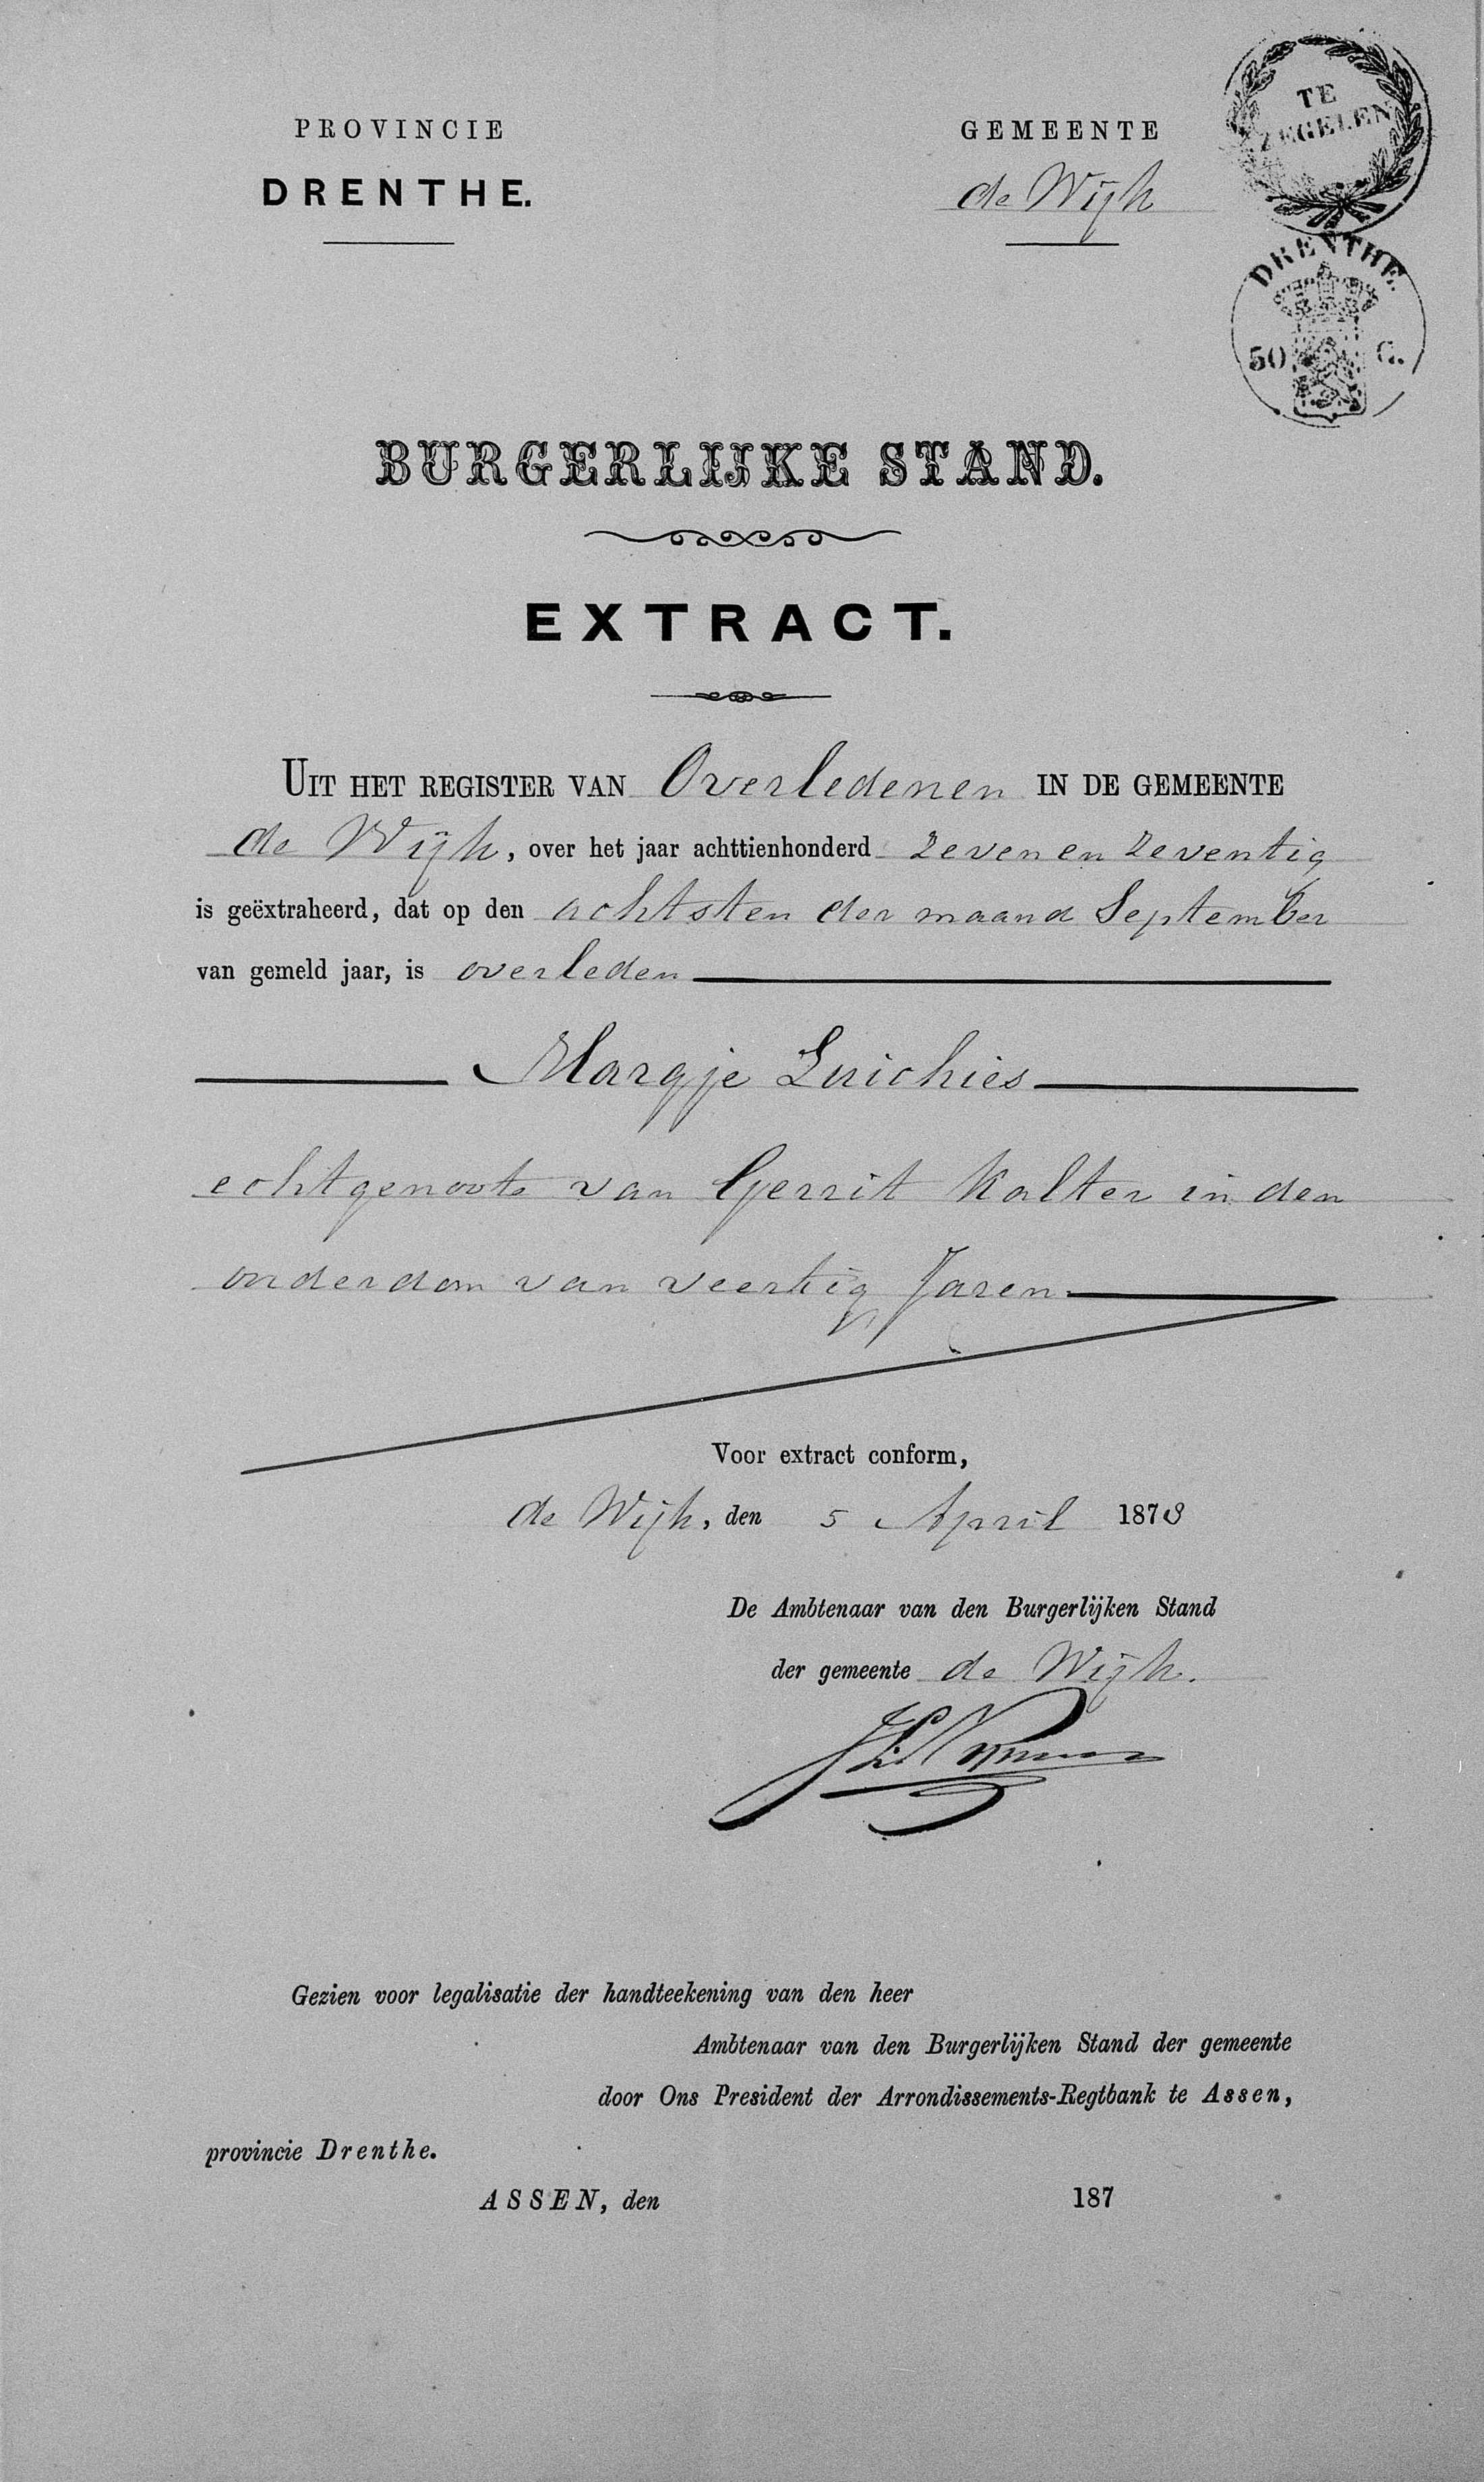 PROVINCIE
DRENTHE.
GEMEENTE
de Wijk
TE
ZEGELEN
DRENTHE.
50 C.
BURGERLIJKE STAND.
EXTRACT.
UIT HET REGISTER VAN Overledenen IN DE GEMEENTE
de Wijk, over het jaar achttienhonderd zeven en zeventig
is geëxtraheerd, dat op den achtsten der maand September
van gemeld jaar, is overleden
Margje Luichies
echtgenoote van Gerrit Kalter in den
ouderdom van veertig Jaren.
Voor extract conform,
de Wijk, den 5 April 1878
De Ambtenaar van den Burgerlijken Stand
der gemeente de Wijk.
Gezien voor legalisatie der handteekening van den heer
Ambtenaar van den Burgerlijken Stand der gemeente
door Ons President der Arrondissements-Regtbank te Assen,
provincie Drenthe.
ASSEN, den 187